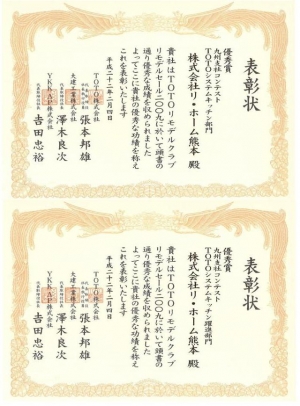 表彰状
優秀賞
九州支社コンテスト
TOTOシステムキッチン部門
株式会社リ・ホーム熊本 殿
貴社はTOTOリモデルクラブ
リモデルセール二〇〇九に於いて頭書の
通り優秀な成績を収められました
よってここに貴社の優秀な功績を称え
これを表彰いたします
平成二十二年二月四日
TOTO株式会社
張本邦雄
大建工業株式会社
澤木良次
YKK AP株式会社
吉田忠裕
表彰状
優秀賞
九州支社コンテスト
TOTOシステムキッチン躍進部門
株式会社リ・ホーム熊本 殿
貴社はTOTOリモデルクラブ
リモデルセール二〇〇九に於いて頭書の
通り優秀な成績を収められました
よってここに貴社の優秀な功績を称え
これを表彰いたします
平成二十二年二月四日
TOTO株式会社
張本邦雄
大建工業株式会社
澤木良次
YKK AP株式会社
吉田忠裕